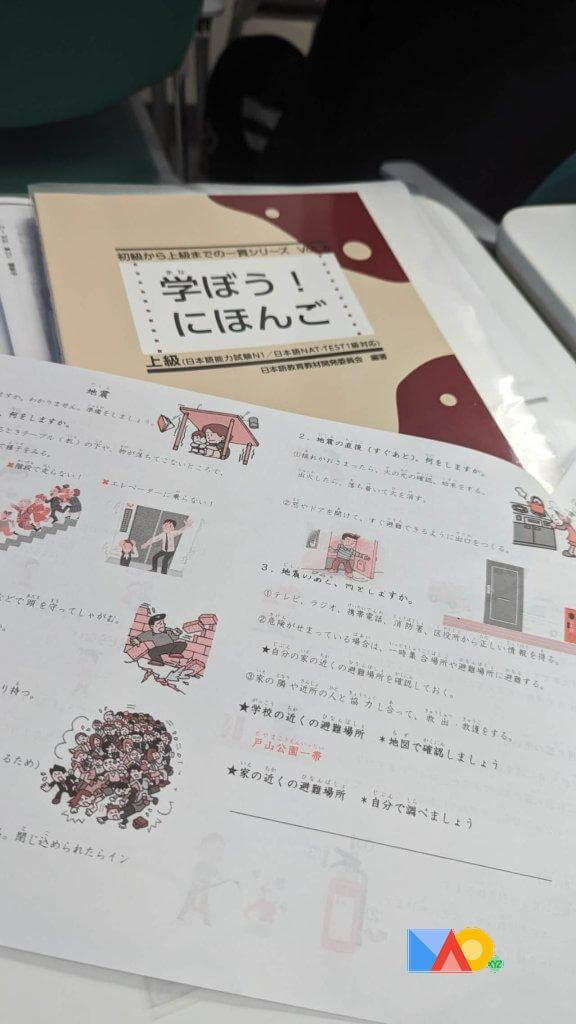 初級から上級までの一貫シリーズ
まな
学ぼう！
にほんご
上級(日本語能力試験N1／日本語NAT-TEST1級対応)
日本語教育教材開発委員会 編著
じしん
地震
すか。わかりません。準備をしましょう。
、何をしますか。
るときテーブル（机）の下や、物が落ちてこないところで、
で様子をみる。
×階段で走らない！
×エレベーターに乗らない！
などで頭を守ってしゃがむ。
り持つ。
るため）
る。閉じ込められたらイン
2．地震の直後（すぐあと）、何をしますか。
①揺れがおさまったら、火の元の確認、始末をする。
出火したら、落ち着いて火を消す。
②窓やドアを開けて、すぐ避難できるように出口をつくる。
3．地震のあと、何をしますか。
①テレビ、ラジオ、携帯電話、消防署、区役所から正しい情報を得る。
②危険がせまっている場合は、一時集合場所や避難場所に避難する。
★自分の家の近くの避難場所を確認しておく。
③家の隣や近所の人と協力し合って、救出、救護をする。
がっこう ちか ひなんばしょ ちず かくにん
★学校の近くの避難場所 ＊地図で確認しましょう
とやまこうえんいったい
戸山公園一帯
いえ ちか ひなんばしょ じぶん しら
★家の近くの避難場所 ＊自分で調べましょう
XYZ